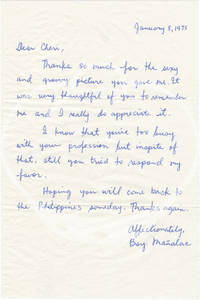 January 8, 1975
Dear Cheri,
Thanks so much for the sexy
and groovy picture you gave me. It
was very thoughtful of you to remember
me and I really do appreciate it.
I know that you're too busy
with your profession but inspite of
that, still you tried to respond my
favor.
Hoping you will come back to
the Philippines someday. Thanks again.
Affectionately,
Boy Mañalac